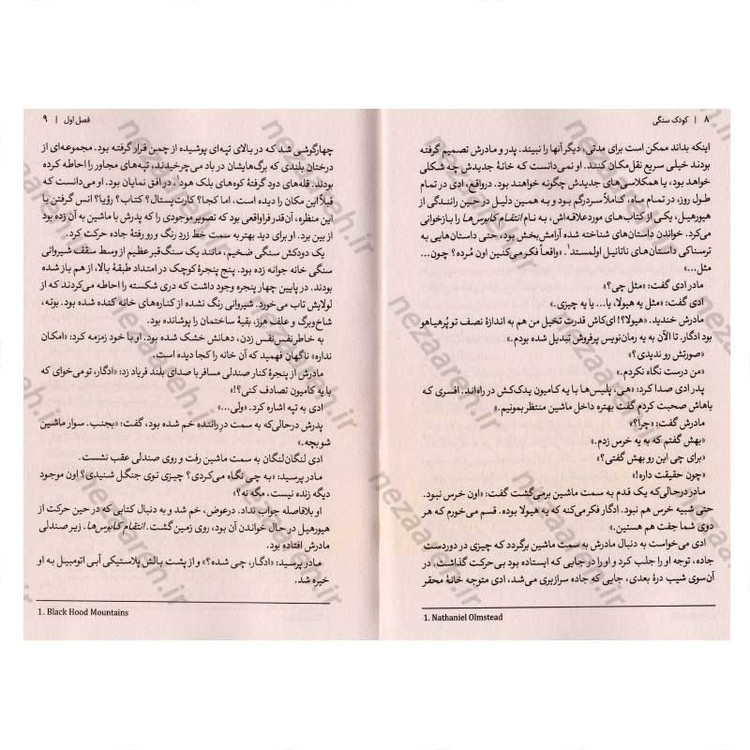 ۸ | کودک سنگی
اینکه بداند ممکن است برای مدتی، دیگر آنها را نبیند. پدر و مادرش تصمیم گرفته
بودند خیلی سریع نقل‌مکان کنند. او نمی‌دانست که خانهٔ جدیدش چه شکلی
خواهد بود، یا همکلاسی‌های جدیدش چگونه خواهند بود. درواقع، ادی در تمام
طول روز، در تمام ماه، کاملاً سردرگم بود و به همین دلیل در حین رانندگی از
هیورهیل، یکی از کتاب‌های موردعلاقه‌اش، به نام انتقام کابوس‌ها را بازخوانی
می‌کرد. خواندن داستان‌های شناخته شده آرامش‌بخش بود، حتی داستان‌هایی به
ترسناکی داستان‌های ناتانیل اولمستد¹. «واقعاً فکر می‌کنین اون مُرده؟ چون...
مثل...»
مادر ادی گفت: «مثل چی؟»
ادی گفت: «مثل یه هیولا، یا... یا یه چیزی.»
مادرش خندید. «هیولا؟! ای‌کاش قدرت تخیل من هم به اندازهٔ نصف تو پُرهیاهو
بود ادگار. تا الآن به یه رمان‌نویس پرفروش تبدیل شده بودم.»
«صورتش رو ندیدی؟»
«من درست نگاه نکردم.»
پدر ادی صدا کرد: «هی، پلیس‌ها با یه کامیون یدک‌کش در راه‌اند. افسری که
باهاش صحبت کردم گفت بهتره داخل ماشین منتظر بمونیم.»
مادرش گفت: «چرا؟»
«بهش گفتم که به یه خرس زدم.»
«برای چی این رو بهش گفتی؟»
«چون حقیقت داره!»
مادر درحالی‌که یک قدم به سمت ماشین برمی‌گشت گفت: «اون خرس نبود.
حتی شبیه خرس هم نبود. ادگار فکر می‌کنه که یه هیولا بوده. قسم می‌خورم که هر
دوی شما جفت هم هستین.»
ادی می‌خواست به دنبال مادرش به سمت ماشین برگردد که چیزی در دوردست
جاده، توجه او را جلب کرد و او را در جایی که ایستاده بود بی‌حرکت گذاشت. در
آن‌سوی شیب درهٔ بعدی، جایی که جاده سرازیری می‌شد، ادی متوجه خانهٔ محقر
1. Nathaniel Olmstead
فصل اول | ۹
چهارگوشی شد که در بالای تپه‌ای پوشیده از چمن قرار گرفته بود. مجموعه‌ای از
درختان بلندی که برگ‌هایشان در باد می‌چرخیدند، تپه‌های مجاور را احاطه کرده
بودند. قله‌های دود گرفتهٔ کوه‌های بلک هود¹، در افق نمایان بود. او می‌دانست که
قبلاً این مکان را دیده است، اما کجا؟ کارت‌پستال؟ کتاب؟ رؤیا؟ انس گرفتن با
این منظره، آن‌قدر فراواقعی بود که تصویر موجودی را که پدرش با ماشین به آن زده بود
از بین برد. او برای دید بهتر به سمت خط زردِ رنگ و رو رفتهٔ جاده حرکت کرد.
یک دودکش سنگی ضخیم، مانند یک سنگ‌قبر عظیم از وسط سقف شیروانی
سنگی خانه جوانه زده بود. پنج پنجرهٔ کوچک در امتداد طبقهٔ بالا، از هم باز شده
بودند. در پایین چهار پنجره وجود داشت که دری شکسته را احاطه می‌کردند که از
لولایش تاب می‌خورد. شیروانی رنگ نشده از کناره‌های خانه کنده شده بود. بوته،
شاخ‌وبرگ و علف هرز، بقیهٔ ساختمان را پوشانده بود.
به خاطر نفس‌نفس زدن، دهانش خشک شده بود. او با خود زمزمه کرد: «امکان
نداره» ناگهان فهمید که آن خانه را کجا دیده است.
مادرش از پنجرهٔ کنار صندلی مسافر با صدای بلند فریاد زد: «ادگار، تو می‌خوای که
با یه کامیون تصادف کنی؟!»
ادی به تپه اشاره کرد. «ولی...»
پدرش درحالی‌که به سمت درِ راننده خم شده بود، گفت: «بجنب. سوار ماشین
شو بچه.»
ادی لنگان‌لنگان به سمت ماشین رفت و روی صندلی عقب نشست.
مادر پرسید: «به چی نگاه می‌کردی؟ چیزی توی جنگل شنیدی؟ اون موجود
دیگه زنده نیست، مگه نه؟»
او بلافاصله جواب نداد. درعوض، خم شد و به دنبال کتابی که در حین حرکت از
هیورهیل در حال خواندن آن بود، روی زمین گشت. انتقام کابوس‌ها، زیر صندلی
مادرش افتاده بود.
مادر پرسید: «ادگار، چی شده؟» و از پشت بالش پلاستیکی آبی اتومبیل به او
خیره شد.
1. Black Hood Mountains
nezaareh.ir